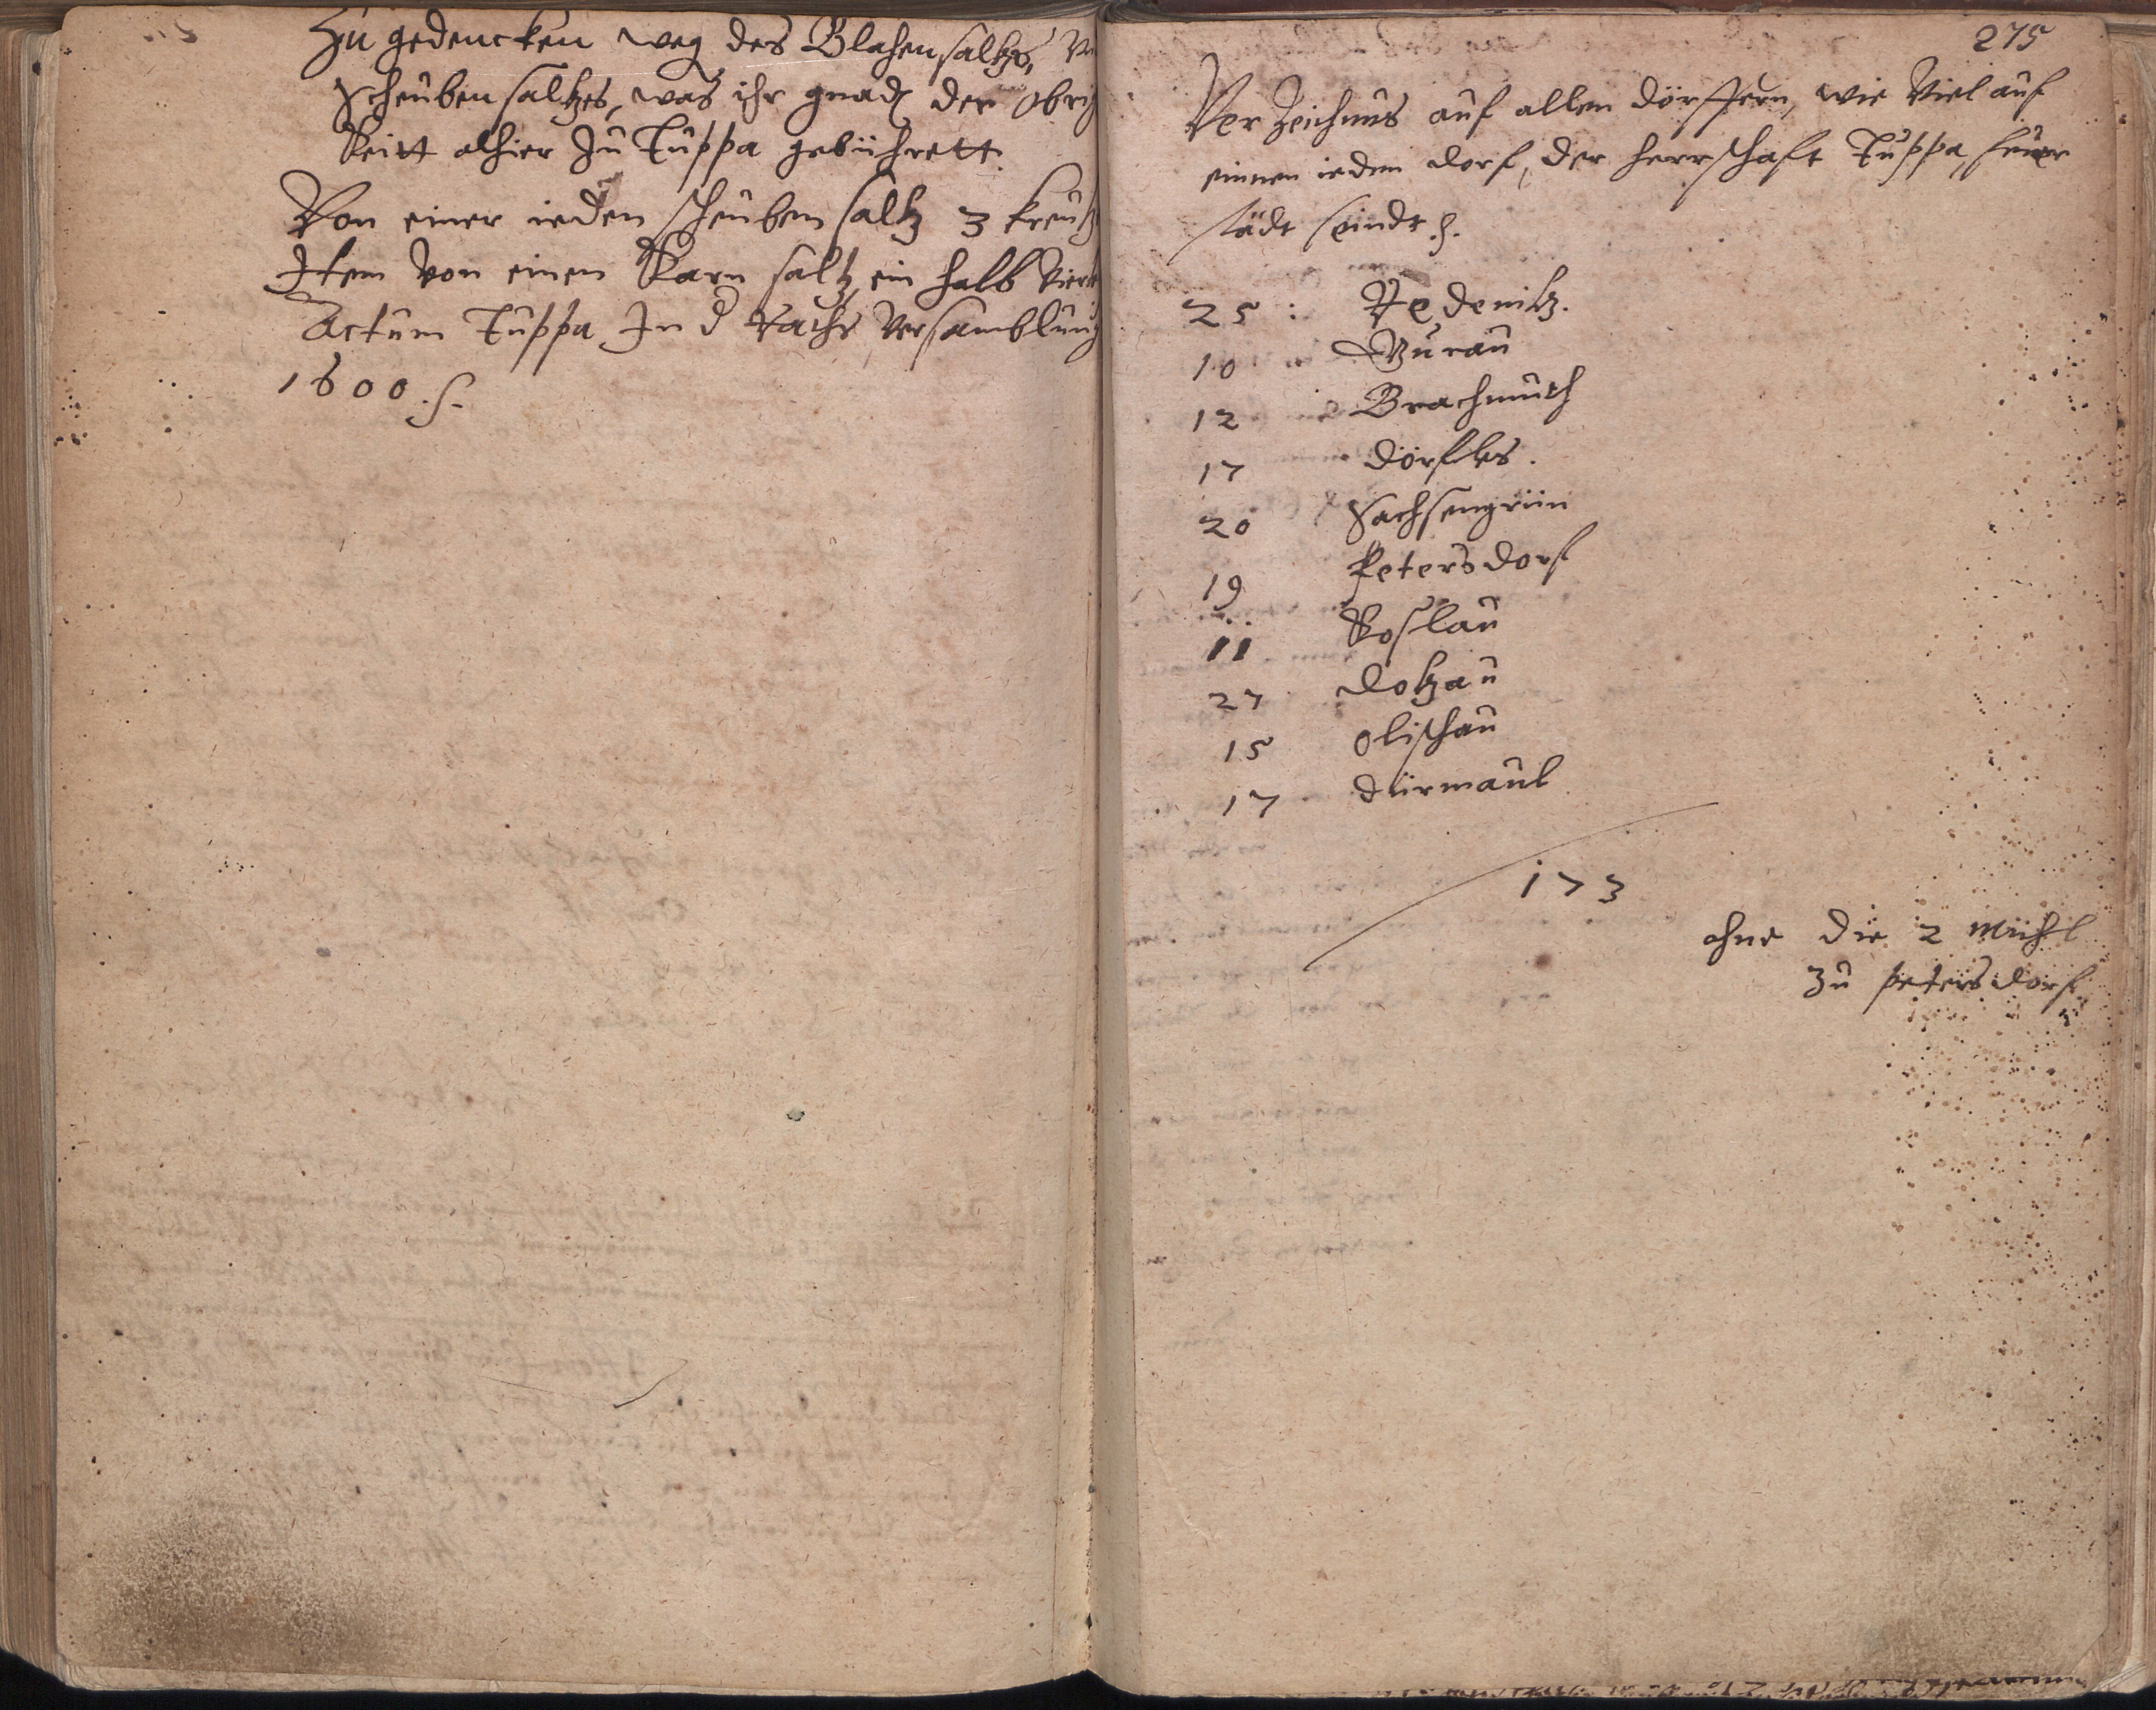 Zu gedencken weg des Blahensaltzes, v
Scheubensaltzes, was ihr gnad der Obrig
Keitt alhier Zu Tuppa gebühret.
Von einer ieden scheuben saltz 3 kreutz
Item von einen Karn saltz, ein halb Viert
Actum Tuppa In d Rachs Versamblung
1600.
275
VerZeichnus auf allen dörffern, wie Viel auf
einnen ieden dorf, der herrschaft Tuppa, feuer
städt seindt.
25 : Redenitz.
10 Burau
12 Brachmuth
17 dörfles.
20 Sachsengrün
19 Petersdorf
11 Koslau
27 dotzau
15 Olischau
17 dürmaul
173
ohne die 2 Mühl
Zu Petersdorf